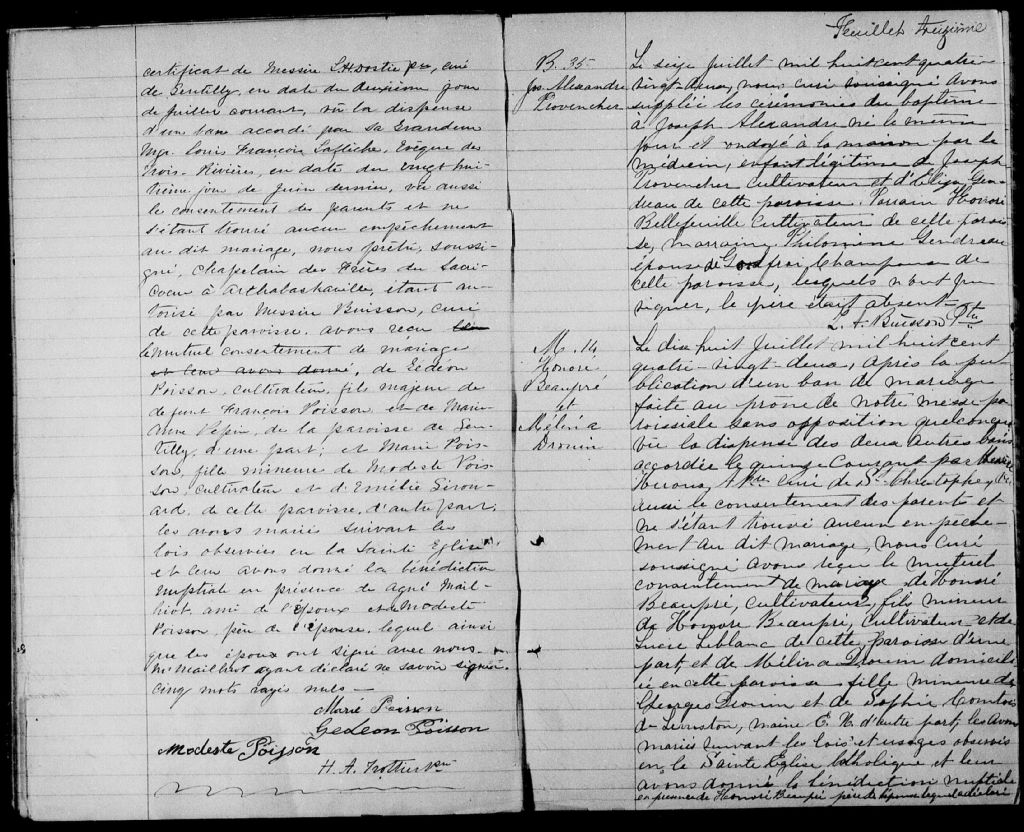 certificat de Messire S.H. Dostie Ptre, curé
de Gentilly, en date du deuxième jour
de juillet courant, vu la dispense
d'un ban accordé par Sa Grandeur
Mgr. Louis François Lafleche, Evêque des
Trois-Rivières, en date du vingt hui-
tième jour de juin dernier, vu aussi
le consentement des parents et ne
s'étant trouvé aucun empêchement
au dit mariage, nous prêtre soussi-
gné, chapelain des Frères du Sacré
Coeur à Arthabaskaville, étant au-
torisé par Messire Buisson, curé
de cette paroisse, avons reçu
le mutuel consentement de mariage
et leur avons donné, de Gédéon
Poisson, cultivateur, fils majeur de
defunt François Poisson et de Marie
Anne Pepin, de la paroisse de Gen-
tilly, d'une part; et Marie Pois-
son, fille mineure de Modeste Pois-
son, cultivateur et d'Emélie Girou-
ard, de cette paroisse, d'autre part;
les avons mariés suivant les
lois observées en la Sainte Eglise
et leur avons donné la bénédiction
nuptiale en présence de Agné Mail-
hiot ami de l'époux et de Modeste
Poisson, père de l'épouse, lequel ainsi
que les époux ont signé avec nous.
Mr Mailhiot ayant déclaré ne savoir signer.
cinq mots rayés nuls —
Marie Poisson
Gedeon Poisson
Modeste Poisson
H. A. Trottier Ptre
Feuillet treizième
B. 35
Jos. Alexandre
Provencher
Le seize Juillet mil huit cent quatre-
vingt-deux, nous curé soussigné avons
supplée les cérémonies du baptême
à Joseph Alexandre né le même
jour et ondoyé à la maison par le
médecin, enfant légitime de Joseph
Provencher cultivateur et d'Eliza Gen-
dreau de cette paroisse. Parrain Honoré
Bellefeuille cultivateur de cette parois-
se, marraine Philomène Gendreau
épouse de Godfroi Champoux de
cette paroisse, lesquels n'ont pu
signer, le père était absent —
L. A. Buisson Ptre
M. 14
Honoré
Beaupré
et
Mélina
Drouin
Le dix huit Juillet mil huit cent
quatre-vingt-deux, après la pu-
blication d'un ban de mariage
faite au prône de notre messe pa-
roissiale sans opposition quelconque
vu la dispense des deux autres bans
accordée le quinze courant par Messire
Héroux, Ptre curé de St. Christophe, vu
aussi le consentement des parents et
ne s'étant trouvé aucun empêche-
ment au dit mariage, nous curé
soussigné avons reçu le mutuel
consentement de mariage de Honoré
Beaupré, cultivateur, fils mineur
de Honoré Beaupré, cultivateur et de
Lucie Leblanc de cette paroisse d'une
part, et de Mélina Drouin domicili-
ée en cette paroisse fille mineure de
Georges Drouin et de Sophie Comtois
de Lewiston, maine E. U. d'autre part, les avons
mariés suivant les lois et usages observés
en la Sainte Eglise Catholique et leur
avons donné la bénédiction nuptiale
en présence de Honoré Beaupré père de l'époux lequel a déclaré